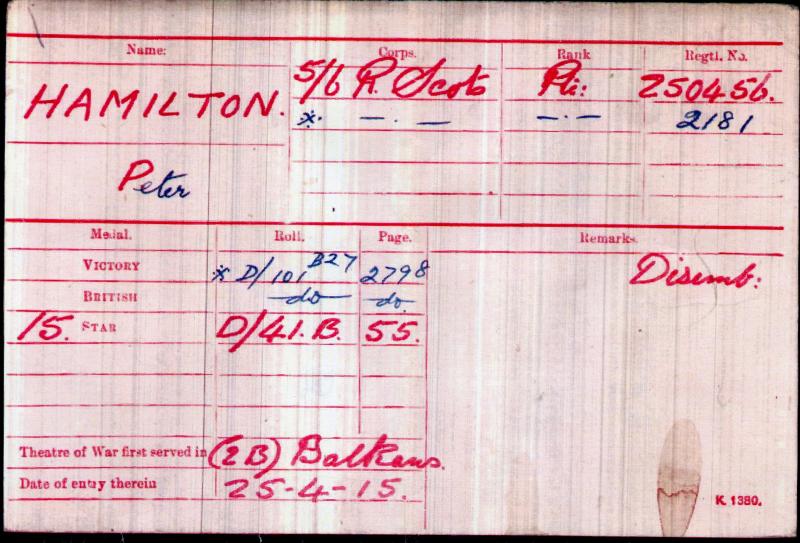 Name: Corps. Rank Regtl. No.
HAMILTON. 5/6 R. Scots Pte: 250456.
*. —.— —.— 2181
Peter
Medal. Roll. Page. Remarks.
VICTORY * D/101 B27 2798 Disemb:
BRITISH do do
15. STAR D/41.B. 55.
Theatre of War first served in (2B) Balkans.
Date of entry therein 25-4-15.
K. 1380.